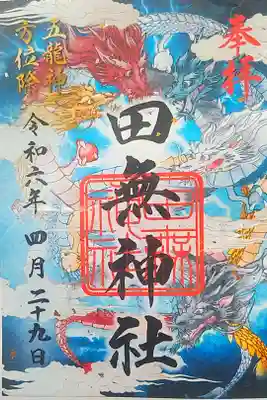 奉拝
田無神社
五龍神
方位除
令和六年 四月二十九日